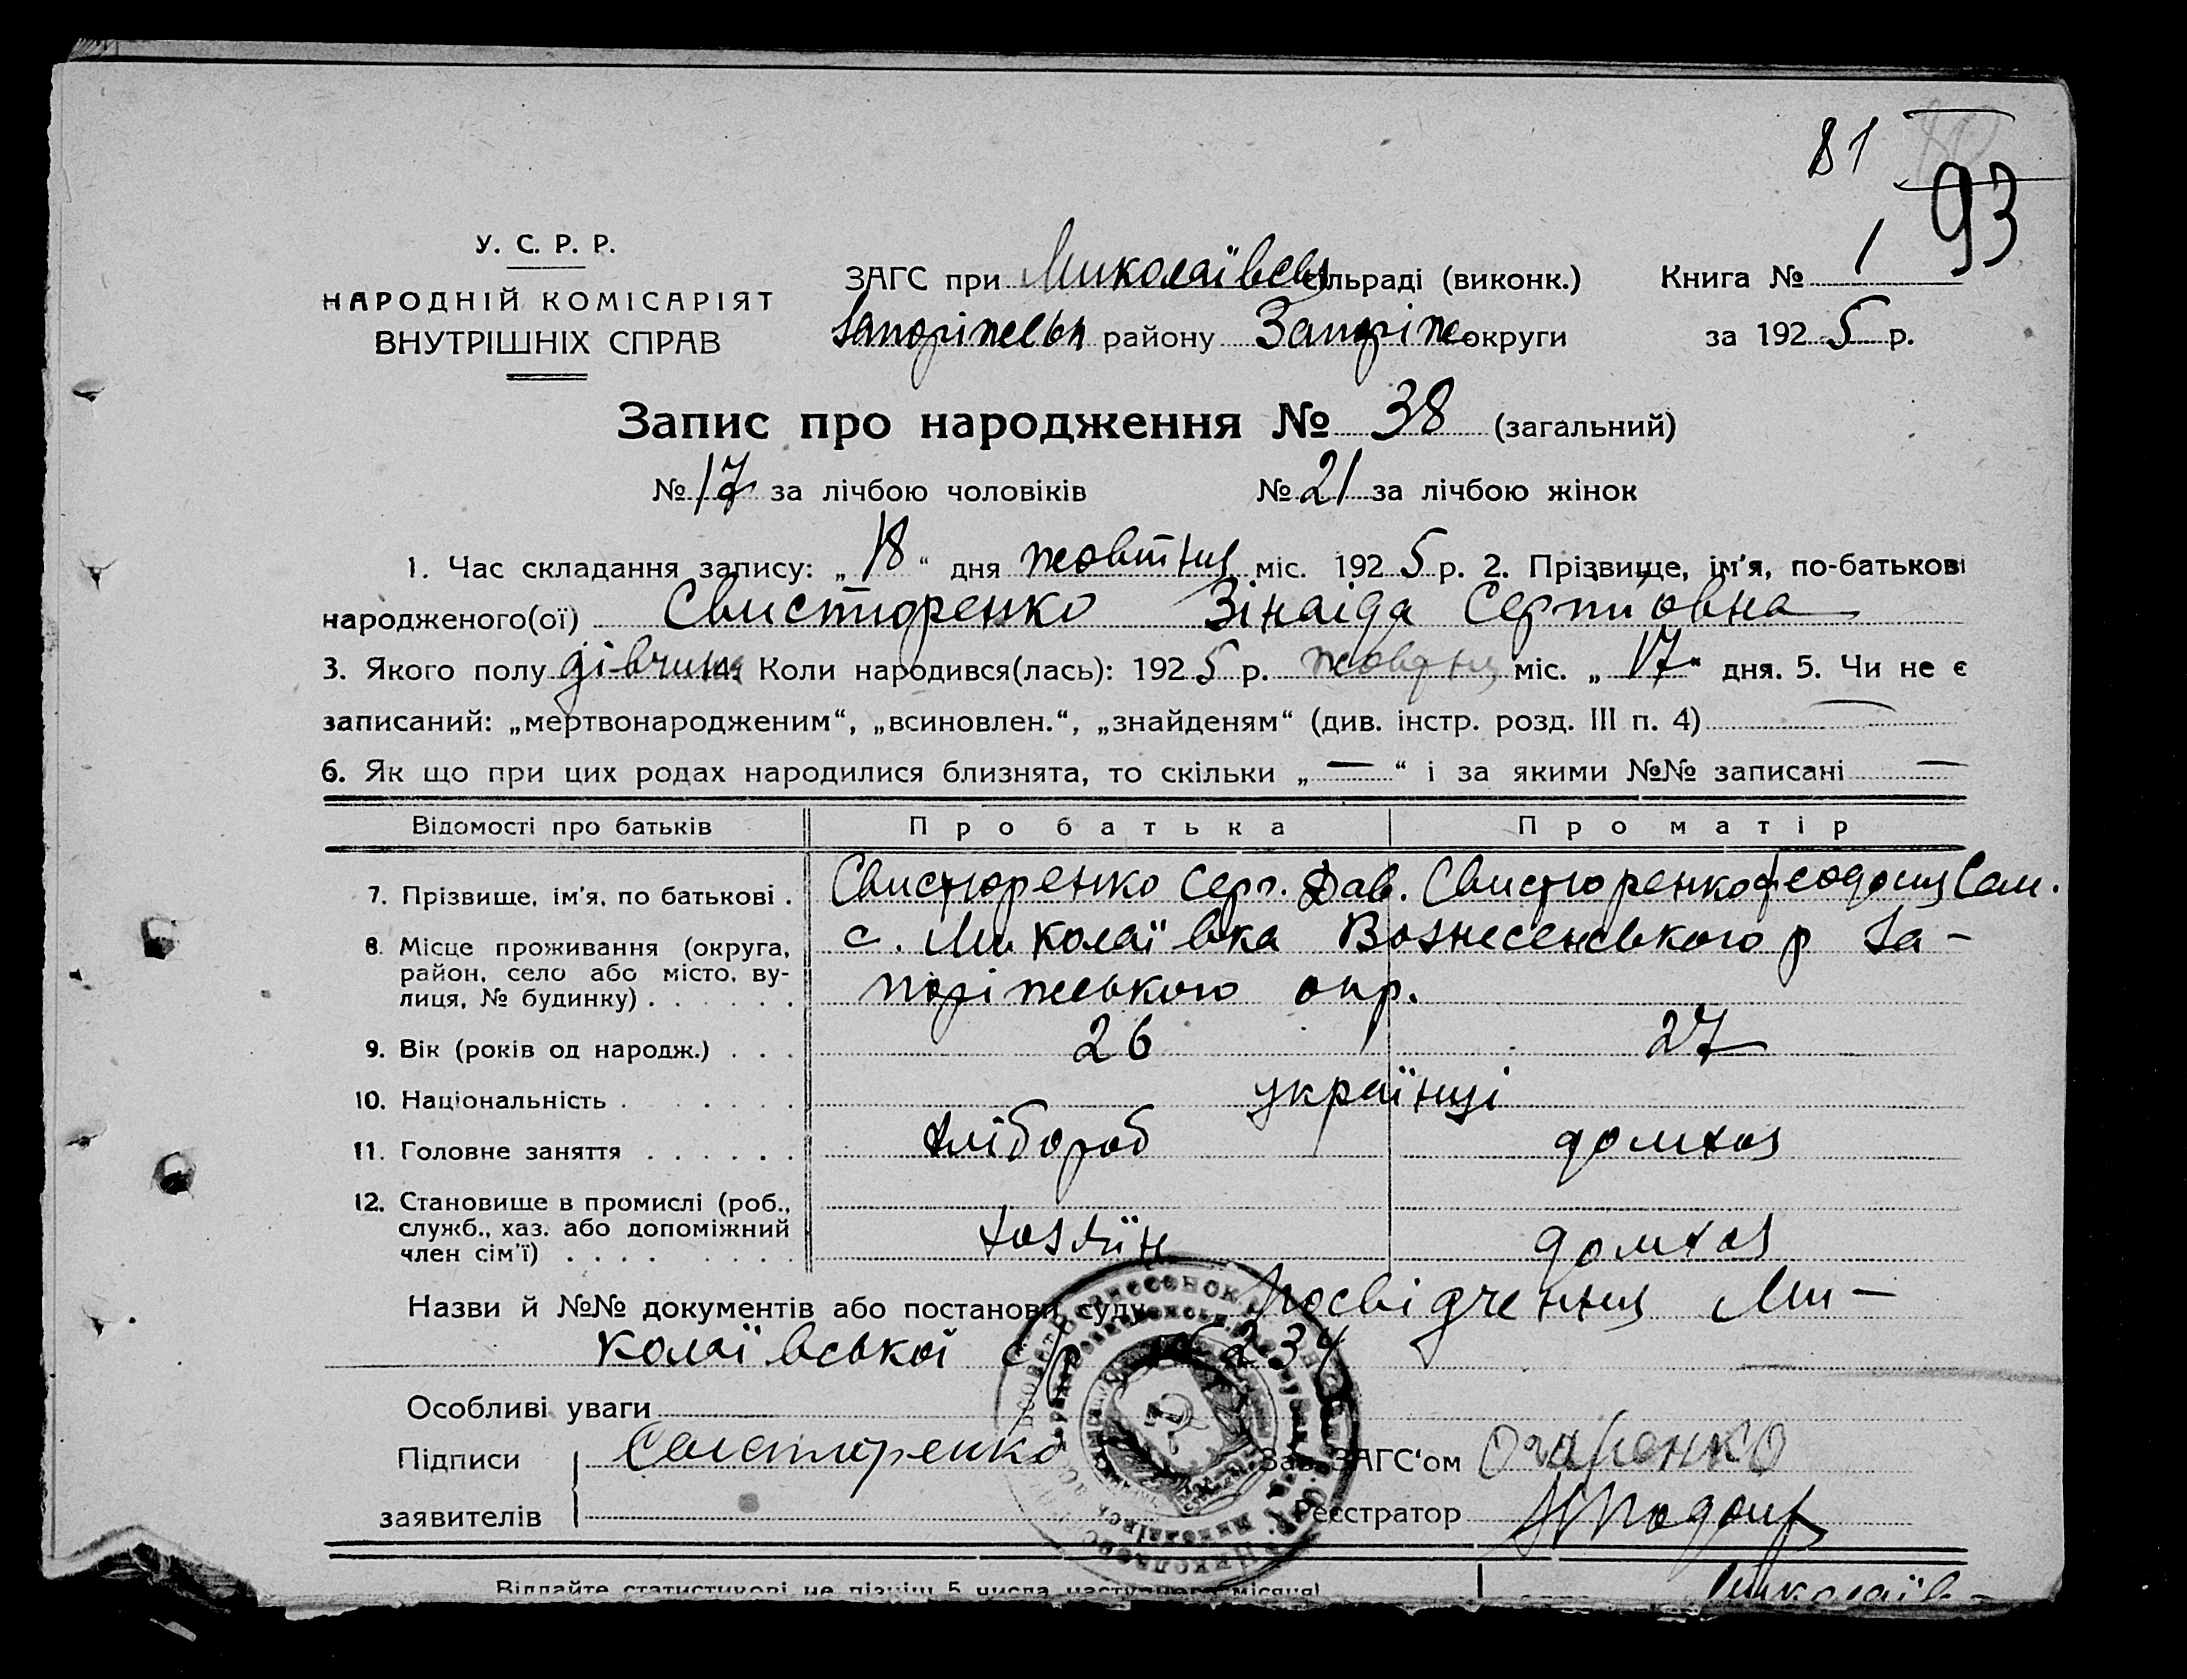 81
93
У. С. Р. Р.
НАРОДНІЙ КОМІСАРІЯТ
ВНУТРІШНІХ СПРАВ
ЗАГС при Миколаївськ сільраді (виконк.) Книга № 1
Запоріжськ району Запоріж округи за 1925 р.
Запис про народження № 38 (загальний)
№ 17 за лічбою чоловіків № 21 за лічбою жінок
1. Час складання запису: „18“ дня жовтня міс. 1925 р. 2. Прізвище, ім'я, по-батькові
народженого(ої) Свистюренко Зінаіда Сергпйовна
3. Якого полу дівчина 4. Коли народився(лась): 1925 р. жовтня міс. „17“ дня. 5. Чи не є
записаний: „мертвонародженим“, „всиновлен.“, „знайденям“ (див. інстр. розд. III п. 4) —
6. Як що при цих родах народилися близнята, то скільки „—“ і за якими №№ записані —
Відомості про батьків Про батька Про матір
7. Прізвище, ім'я, по батькові . Свистюренко Серг. Дав. Свистюренко Феодосия Сам.
8. Місце проживання (округа, район, село або місто, вулиця, № будинку) . с. Миколаївка Вознесенського р За-
поріжського окр.
9. Вік (років од народж.) . . . 26 27
10. Національність . українці
11. Головне заняття . . . . . . хлібороб домхоз
12. Становище в промислі (роб., служб., хаз. або допоміжний член сім'ї) . хозяїн домхоз
Назви й №№ документів або постанови суду Посвідчення Ми-
колаївської с/р № 234
Особливі уваги
Підписи заявителів Свистюренко
Зав. ЗАГС'ом Огаренко
Реєстратор
Віддайте статистикові не пізніш 5 числа наступного місяця!
Миколаїв-